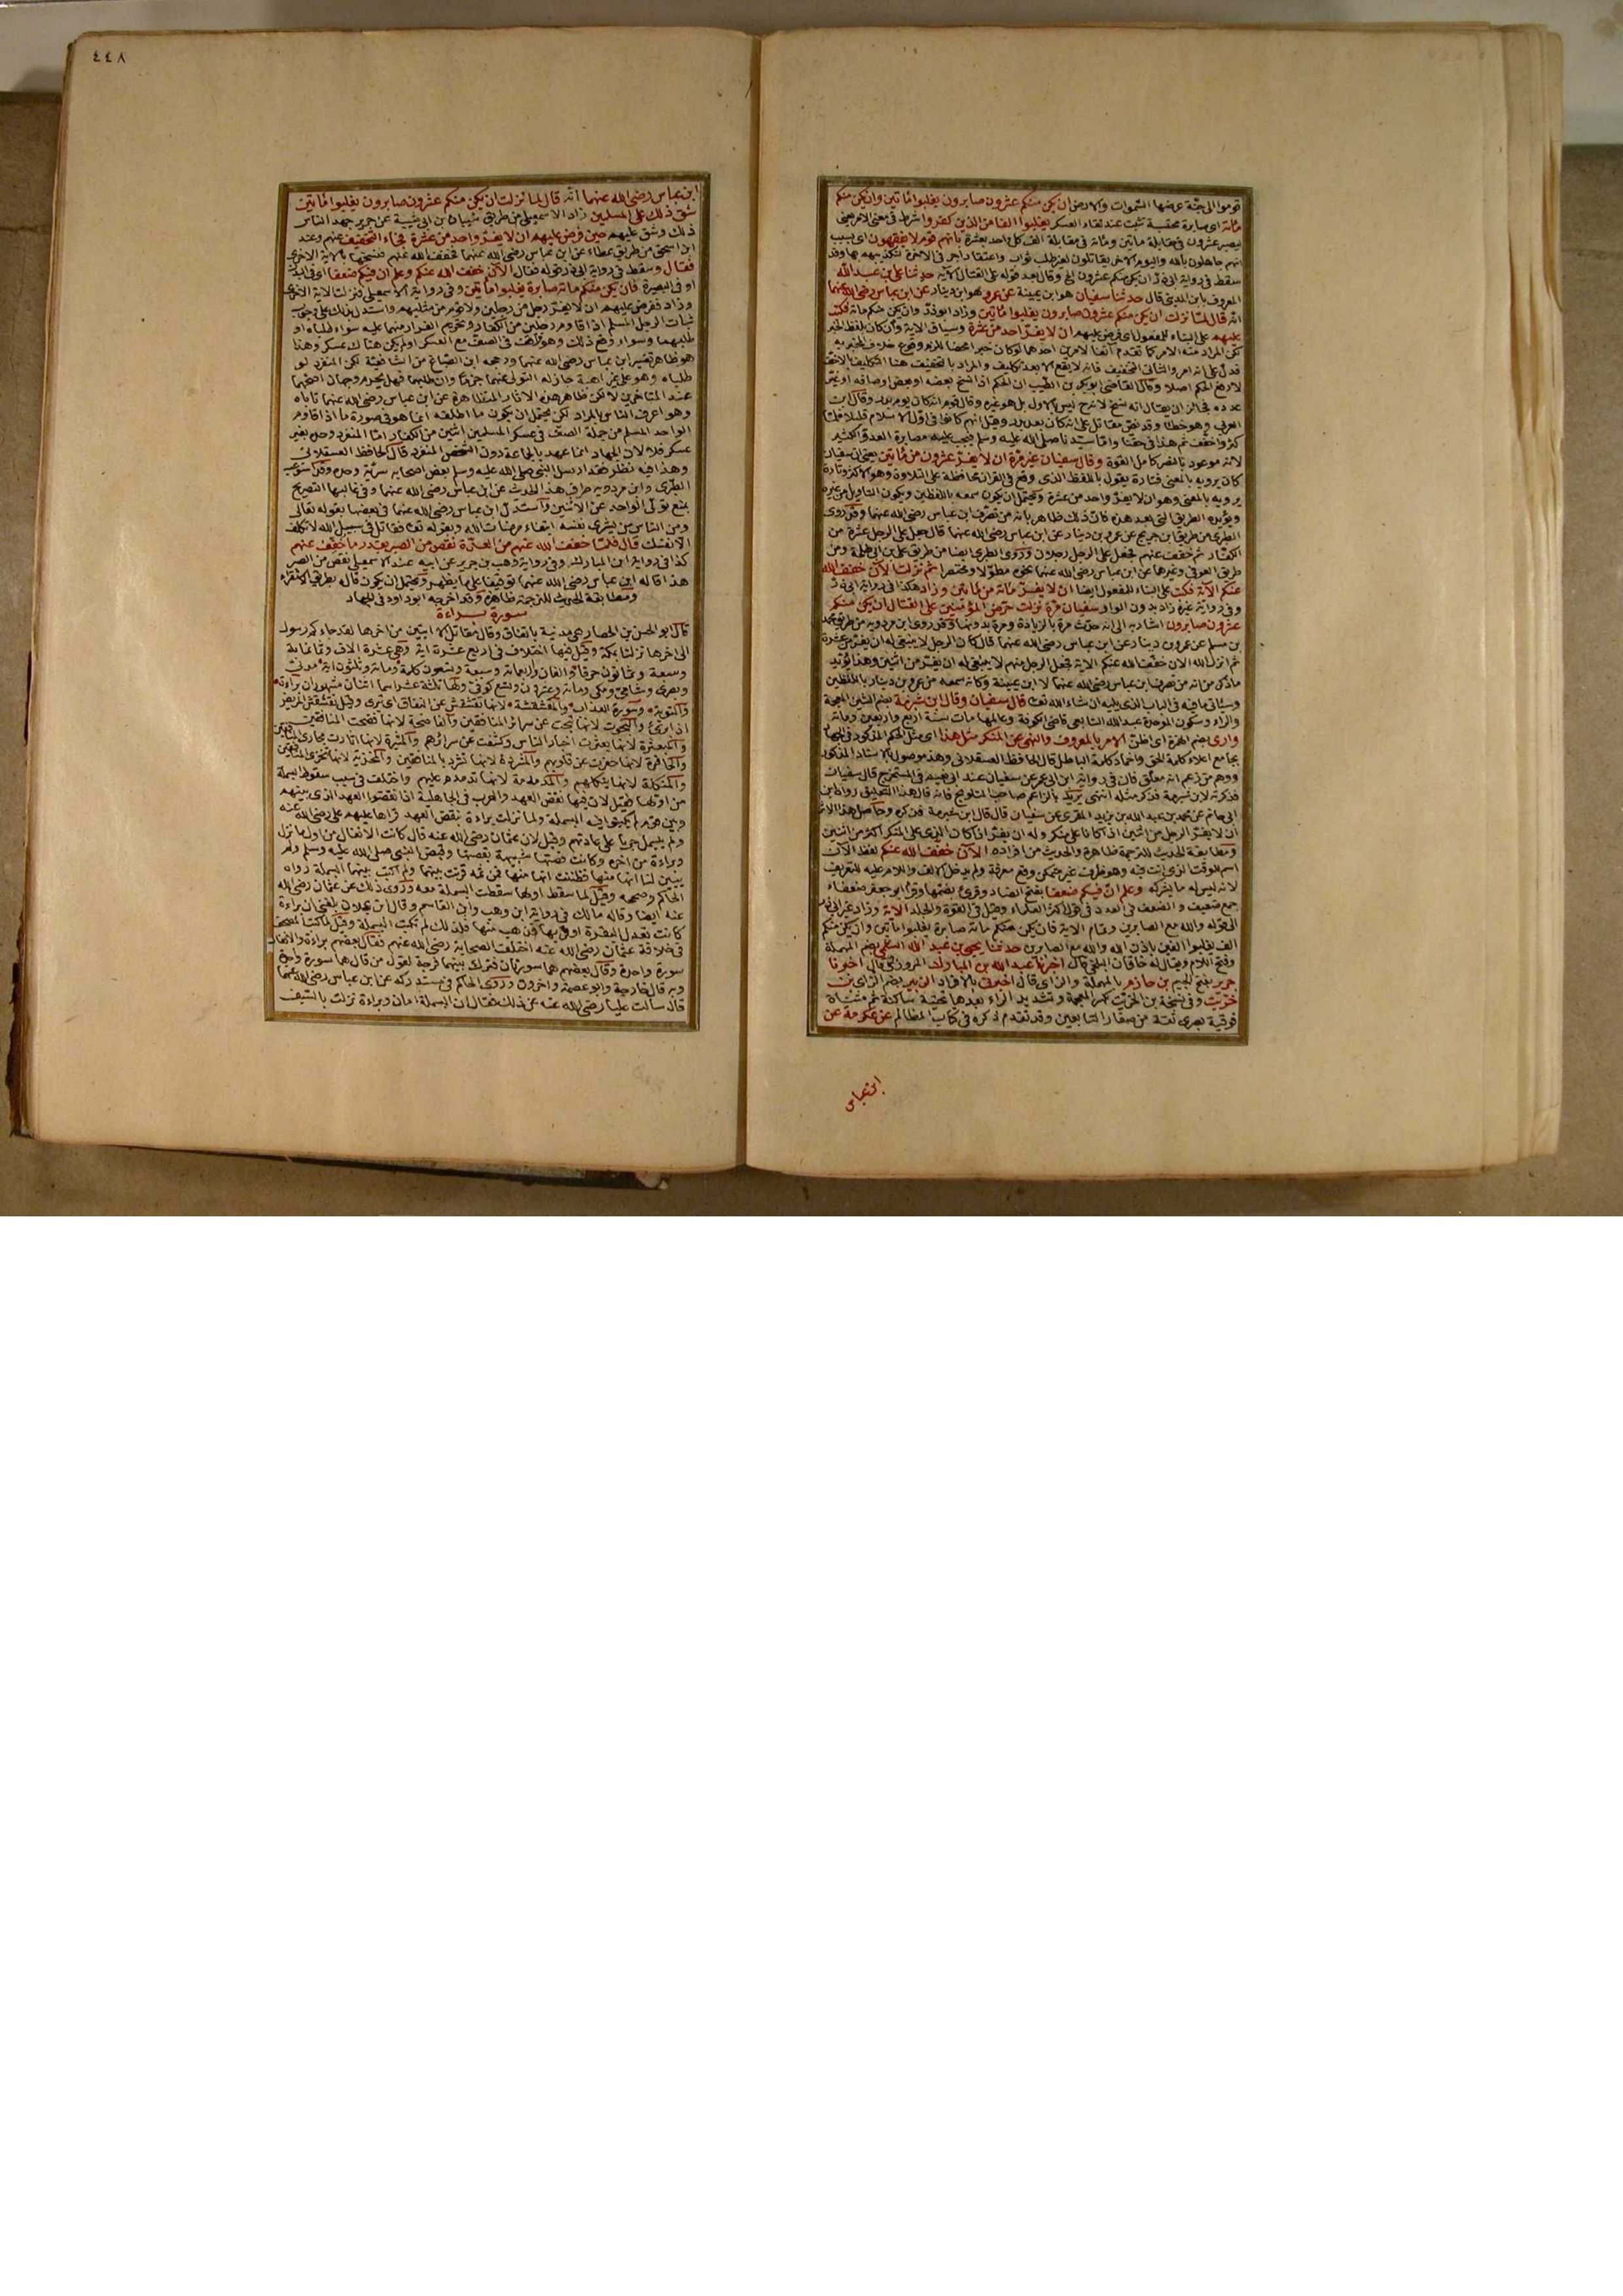 قوموا الى جنة عرضها السموات والارض ان يكن منكم عشرون صابرون يغلبوا مائتين وان يكن منكم
مائة اى صابرة محتسبة تثبت عند لقاء العسكر يغلبوا الفا من الذين كفروا شرط فى معنى الامر يعنى
ليصبر عشرون فى مقابلة مائتين ومائة فى مقابلة الف كل واحد بعشرة بانهم قوم لا يفقهون اى بسبب
انهم جاهلون بالله واليوم الاخر يقاتلون لغير طلب ثواب واعتقاد اجر فى الاخرة لتكذيبهم بها وقد
سقط فى رواية ابى ذر ان يكن منكم عشرون الخ وقال بعد قوله على القتال الاية حدثنا على بن عبد الله
المعروف بابن المدينى قال حدثنا سفيان هو ابن عيينة عن عمرو هو ابن دينار عن ابن عباس رضى الله عنهما
انه قال لما نزلت ان يكن منكم عشرون صابرون يغلبوا مائتين وزاد ابو ذر وان يكن منكم مائة فكتب
عليهم على البناء للمفعول اى فرض عليهم ان لا يفر واحد من عشرة وسياق الاية وان كان بلفظ الخبر
لكن المراد منه الامر كما تقدم آنفا لامرين احدهما لو كان خبرا محضا للزم وقوع خلاف المخبر به
فدل على انه امر والثانى التخفيف فانه لا يقع الا بعد تكليف والمراد بالتخفيف هنا التكليف بالاخف
لا رفع الحكم اصلا وقال القاضى ابو بكر بن الطيب ان الحكم اذا نسخ بعضه او بعض اوصافه او غير
عدده فجائز ان يقال انه نسخ لانه ح ليس بالاول بل هو غيره وقال قوم انه كان يوم بدر وقال ابن
العربى وهو خطا وقد نص مقاتل على انه كان بعد بدر وقيل انهم كانوا فى اول الاسلام قليلا فلما
كثروا خفف ثم هذا فى حقنا واما سيدنا صلى الله عليه وسلم فيجب عليه مصابرة العدو الكثير
لانه موعود بالنصر كامل القوة وقال سفيان غير مرة ان لا يفر عشرون من مائتين يعنى ان سفيان
كان يرويه بالمعنى فتارة يقول باللفظ الذى وقع فى القران محافظة على التلاوة وهو الاكثر وتارة
يرويه بالمعنى وهو ان لا يفر واحد من عشرة ويحتمل ان يكون سمعه باللفظين ويكون التاويل من غيره
ويؤيده الطريق التى بعد هذه فان ذلك ظاهر بانه من تصرف ابن عباس رضى الله عنهما وقد روى
الطبرى من طريق ابن جريج عن عمرو بن دينار عن ابن عباس رضى الله عنهما قال جعل على الرجل عشرة من
الكفار ثم خفف عنهم فجعل على الرجل رجلان وروى الطبرى ايضا من طريق على بن ابى طلحة ومن
طريق العوفى وغيرها عن ابن عباس رضى الله عنهما نحوه مطولا ومختصرا ثم نزلت الآن خفف الله
عنكم الآية فكتب على البناء للمفعول ايضا ان لا يفر مائة من مائتين وزاد هكذا فى رواية ابى ذر
وفى رواية غيره زاد بدون الواو سفيان مرة نزلت حرض المؤمنين على القتال ان يكن منكم
عشرون صابرون اشار به الى انه حدث مرة بالزيادة ومرة بدونها وقد روى ابن مردويه من طريق محمد
بن مسلم عن عمرو بن دينار عن ابن عباس رضى الله عنهما قال كان الرجل لا ينبغى له ان يفر من عشرة
ثم انزل الله الان خفف الله عنكم الاية فجعل الرجل منهم لا ينبغى له ان يفر من اثنين وهذا يؤيد
ما ذكر من انه من تصرف ابن عباس رضى الله عنهما لا ابن عيينة وكانه سمعه من عمرو بن دينار باللفظين
وسياتى ما فيه فى الباب الذى يليه ان شاء الله تعالى قال سفيان وقال ابن شبرمة بضم الشين المعجمة
والراء وسكون الموحدة عبد الله التابعى قاضى الكوفة وعالمها مات سنة اربع واربعين ومائة
وارى بضم الهمزة اى اظن الامر بالمعروف والنهى عن المنكر مثل هذا اى مثل الحكم المذكور فى الجهاد
بجامع اعلاء كلمة الحق واخماد كلمة الباطل قال الحافظ العسقلانى وهذا موصول بالاسناد المذكور
ووهم من زعم انه معلق فان فى رواية ابن ابى عمر عن سفيان عند ابى نعيم فى المستخرج قال سفيان
فذكرته لابن شبرمة فذكر مثله انتهى يريد بالزاعم صاحب التلويح فانه قال هذا التعليق رواه ابن
ابى حاتم عن محمد بن عبد الله بن يزيد المقرى عن سفيان قال قال ابن شبرمة فذكره وحاصل هذا الاثر
ان لا يفر الرجل من اثنين اذا كانا على منكر وله ان يفر اذا كان الذى على المنكر اكثر من اثنين
ومطابقة الحديث للترجمة ظاهرة والحديث من افراده الآن خفف الله عنكم لفظ الآن
اسم للوقت الذى انت فيه وهو ظرف غير متمكن وقع معرفة ولم يدخل الالف واللام عليه للتعريف
لانه ليس له ما يشركه وعلم ان فيكم ضعفا بفتح الضاد وقرئ بضمها وقرأ ابو جعفر ضعفاء
جمع ضعيف والضعف فى العدد فى قول اكثر العلماء وقيل فى القوة والجلد الاية وزاد غير ابى ذر
الى قوله والله مع الصابرين وتمام الاية فان يكن منكم مائة صابرة يغلبوا مائتين وان يكن منكم
الف يغلبوا الفين باذن الله والله مع الصابرين حدثنا يحيى بن عبد الله السلمى بضم المهملة
وفتح اللام ويقال له خاقان البلخى قال اخبرنا عبد الله بن المبارك المروزى قال اخبرنا
جرير بفتح الجيم بن حازم بالمهملة والزاى قال اخبرنى بالافراد الزبير بضم الزاى بن
خريت وفى نسخة بن الخريت بكسر المعجمة وتشديد الراء بعدها تحتية ساكنة ثم مثناة
فوقية بصرى ثقة من صغار التابعين وقد تقدم ذكره فى كتاب المظالم عن عكرمة عن
ابن عباس
٤٤٨
ابن عباس رضى الله عنهما انه قال لما نزلت ان يكن منكم عشرون صابرون يغلبوا مائتين
شق ذلك على المسلمين زاد الاسمعيلى من طريق شيبان بن ابى شيبة عن جرير جهد الناس
ذلك وشق عليهم حين فرض عليهم ان لا يفر واحد من عشرة فجاء التخفيف عنهم وعند
ابن اسحق من طريق عطاء عن ابن عباس رضى الله عنهما فخفف الله عنهم فنسختها بالاية الاخرى
فقال وسقط فى رواية ابى ذر قوله فقال الآن خفف الله عنكم وعلم ان فيكم ضعفا اى فى البدن
او فى البصيرة فان يكن منكم مائة صابرة يغلبوا مائتين وفى رواية الاسمعيلى فنزلت الاية الاخرى
وزاد ففرض عليهم ان لا يفر رجل من رجلين ولا قوم من مثليهم واستدل بذلك على وجوب
ثبات الرجل المسلم اذا قاوم رجلين من الكفار وتحريم الفرار منهما عليه سواء طلباه او
طلبهما وسواء وقع ذلك وهو واقف فى الصف مع العسكر او لم يكن هناك عسكر وهذا
هو ظاهر تفسير ابن عباس رضى الله عنهما ورجحه ابن الصباغ من الشافعية لكن المنفرد لو
طلباه وهو على غير اهبة جاز له التولى عنهما جزما وان طلبهما فهل يحرم وجهان اصحهما
عند المتاخرين لا لكن ظاهر هذه الاثار المتظاهرة عن ابن عباس رضى الله عنهما تاباه
وهو اعرف الناس بالمراد لكن يحتمل ان يكون ما اطلقه انما هو فى صورة ما اذا قاوم
الواحد المسلم من جملة الصف فى عسكر المسلمين اثنين من الكفار اما المنفرد وحده بغير
عسكر فلا لان الجهاد انما عهد بالجماعة دون الشخص المنفرد قال الحافظ العسقلانى
وهذا فيه نظر فقد ارسل النبى صلى الله عليه وسلم بعض اصحابه سرية وحده وقد استوعب
الطبرى وابن مردويه طرق هذا الحديث عن ابن عباس رضى الله عنهما وفى غالبها التصريح
بمنع تولى الواحد عن الاثنين واستدل ابن عباس رضى الله عنهما فى بعضها بقوله تعالى
ومن الناس من يشرى نفسه ابتغاء مرضات الله وبقوله تعالى فقاتل فى سبيل الله لا تكلف
الا نفسك قال فلما خفف الله عنهم من العدة نقص من الصبر بقدر ما خفف عنهم
كذا فى رواية ابن المبارك وفى رواية وهب بن جرير عن ابيه عند الاسمعيلى نقص من الصبر
هذا قاله ابن عباس رضى الله عنهما توقيفا على ما يظهر ويحتمل ان يكون قاله بطريق الاستقراء
ومطابقة الحديث للترجمة ظاهرة وقد اخرجه ابو داود فى الجهاد
سورة براءة
قال ابو الحسن بن الحصار هى مدنية باتفاق وقال مقاتل الا ايتين من اخرها لقد جاءكم رسول
الى اخرها نزلتا بمكة وقيل فيها اختلاف فى اربع عشرة اية وهى عشرة الاف وثمانماية
وسبعة وثمانون حرفا والفان واربعمائة وسبعة وتسعون كلمة ومائة وثلثون اية مدنى
وبصرى وشامى ومكى ومائة وعشرون وتسع كوفى ولها ثلثة عشر اسما اثنان مشهوران براءة
والتوبة وسورة العذاب والمقشقشة لانها تقشقش عن النفاق اى تبرئ وقيل تقشقش المريض
اذا برئ والبحوث لانها تبحث عن سرائر المنافقين والفاضحة لانها فضحت المنافقين
والمبعثرة لانها بعثرت اخبار الناس وكشفت عن سرائرهم والمثيرة لانها اثارت مخازى المنافقين
والحافرة لانها حفرت عن قلوبهم والمشردة لانها تشرد بالمنافقين والمخزية لانها تخزى المنافقين
والمنكلة لانها تنكلهم والمدمدمة لانها تدمدم عليهم واختلف فى سبب سقوط البسملة
من اولها فقيل لان فيها نقض العهد والعرب فى الجاهلية اذا نقضوا العهد الذى بينهم
وبين قوم لم يكتبوا فيه البسملة ولما نزلت براءة بنقض العهد قراها عليهم على رضى الله عنه
ولم يبسمل جريا على عادتهم وقيل لان عثمان رضى الله عنه قال كانت الانفال من اول ما نزل
وبراءة من اخره وكانت قصتها شبيهة بقصتها وقبض النبى صلى الله عليه وسلم ولم
يبين لنا انها منها فظننت انها منها فمن ثمه قرنت بينهما ولم اكتب بينهما البسملة رواه
الحاكم وصححه وقيل لما سقط اولها سقطت البسملة معه وروى ذلك عن عثمان رضى الله
عنه ايضا وقاله مالك فى رواية ابن وهب وابن القاسم وقال ابن عجلان بلغنى ان براءة
كانت تعدل البقرة او قربها فذهب منها فلذلك لم تكتب البسملة وقيل لما كتب المصحف
فى خلافة عثمان رضى الله عنه اختلفت الصحابة رضى الله عنهم فقال بعضهم براءة والانفال
سورة واحدة وقال بعضهم هما سورتان فترك بينهما فرجة لقول من قال هما سورة واحدة
وبه قال خارجة وابو عصمة واخرون وروى الحاكم فى مستدركه عن ابن عباس رضى الله عنهما
قال سالت عليا رضى الله عنه عن ذلك فقال ان البسملة امان وبراءة نزلت بالسيف